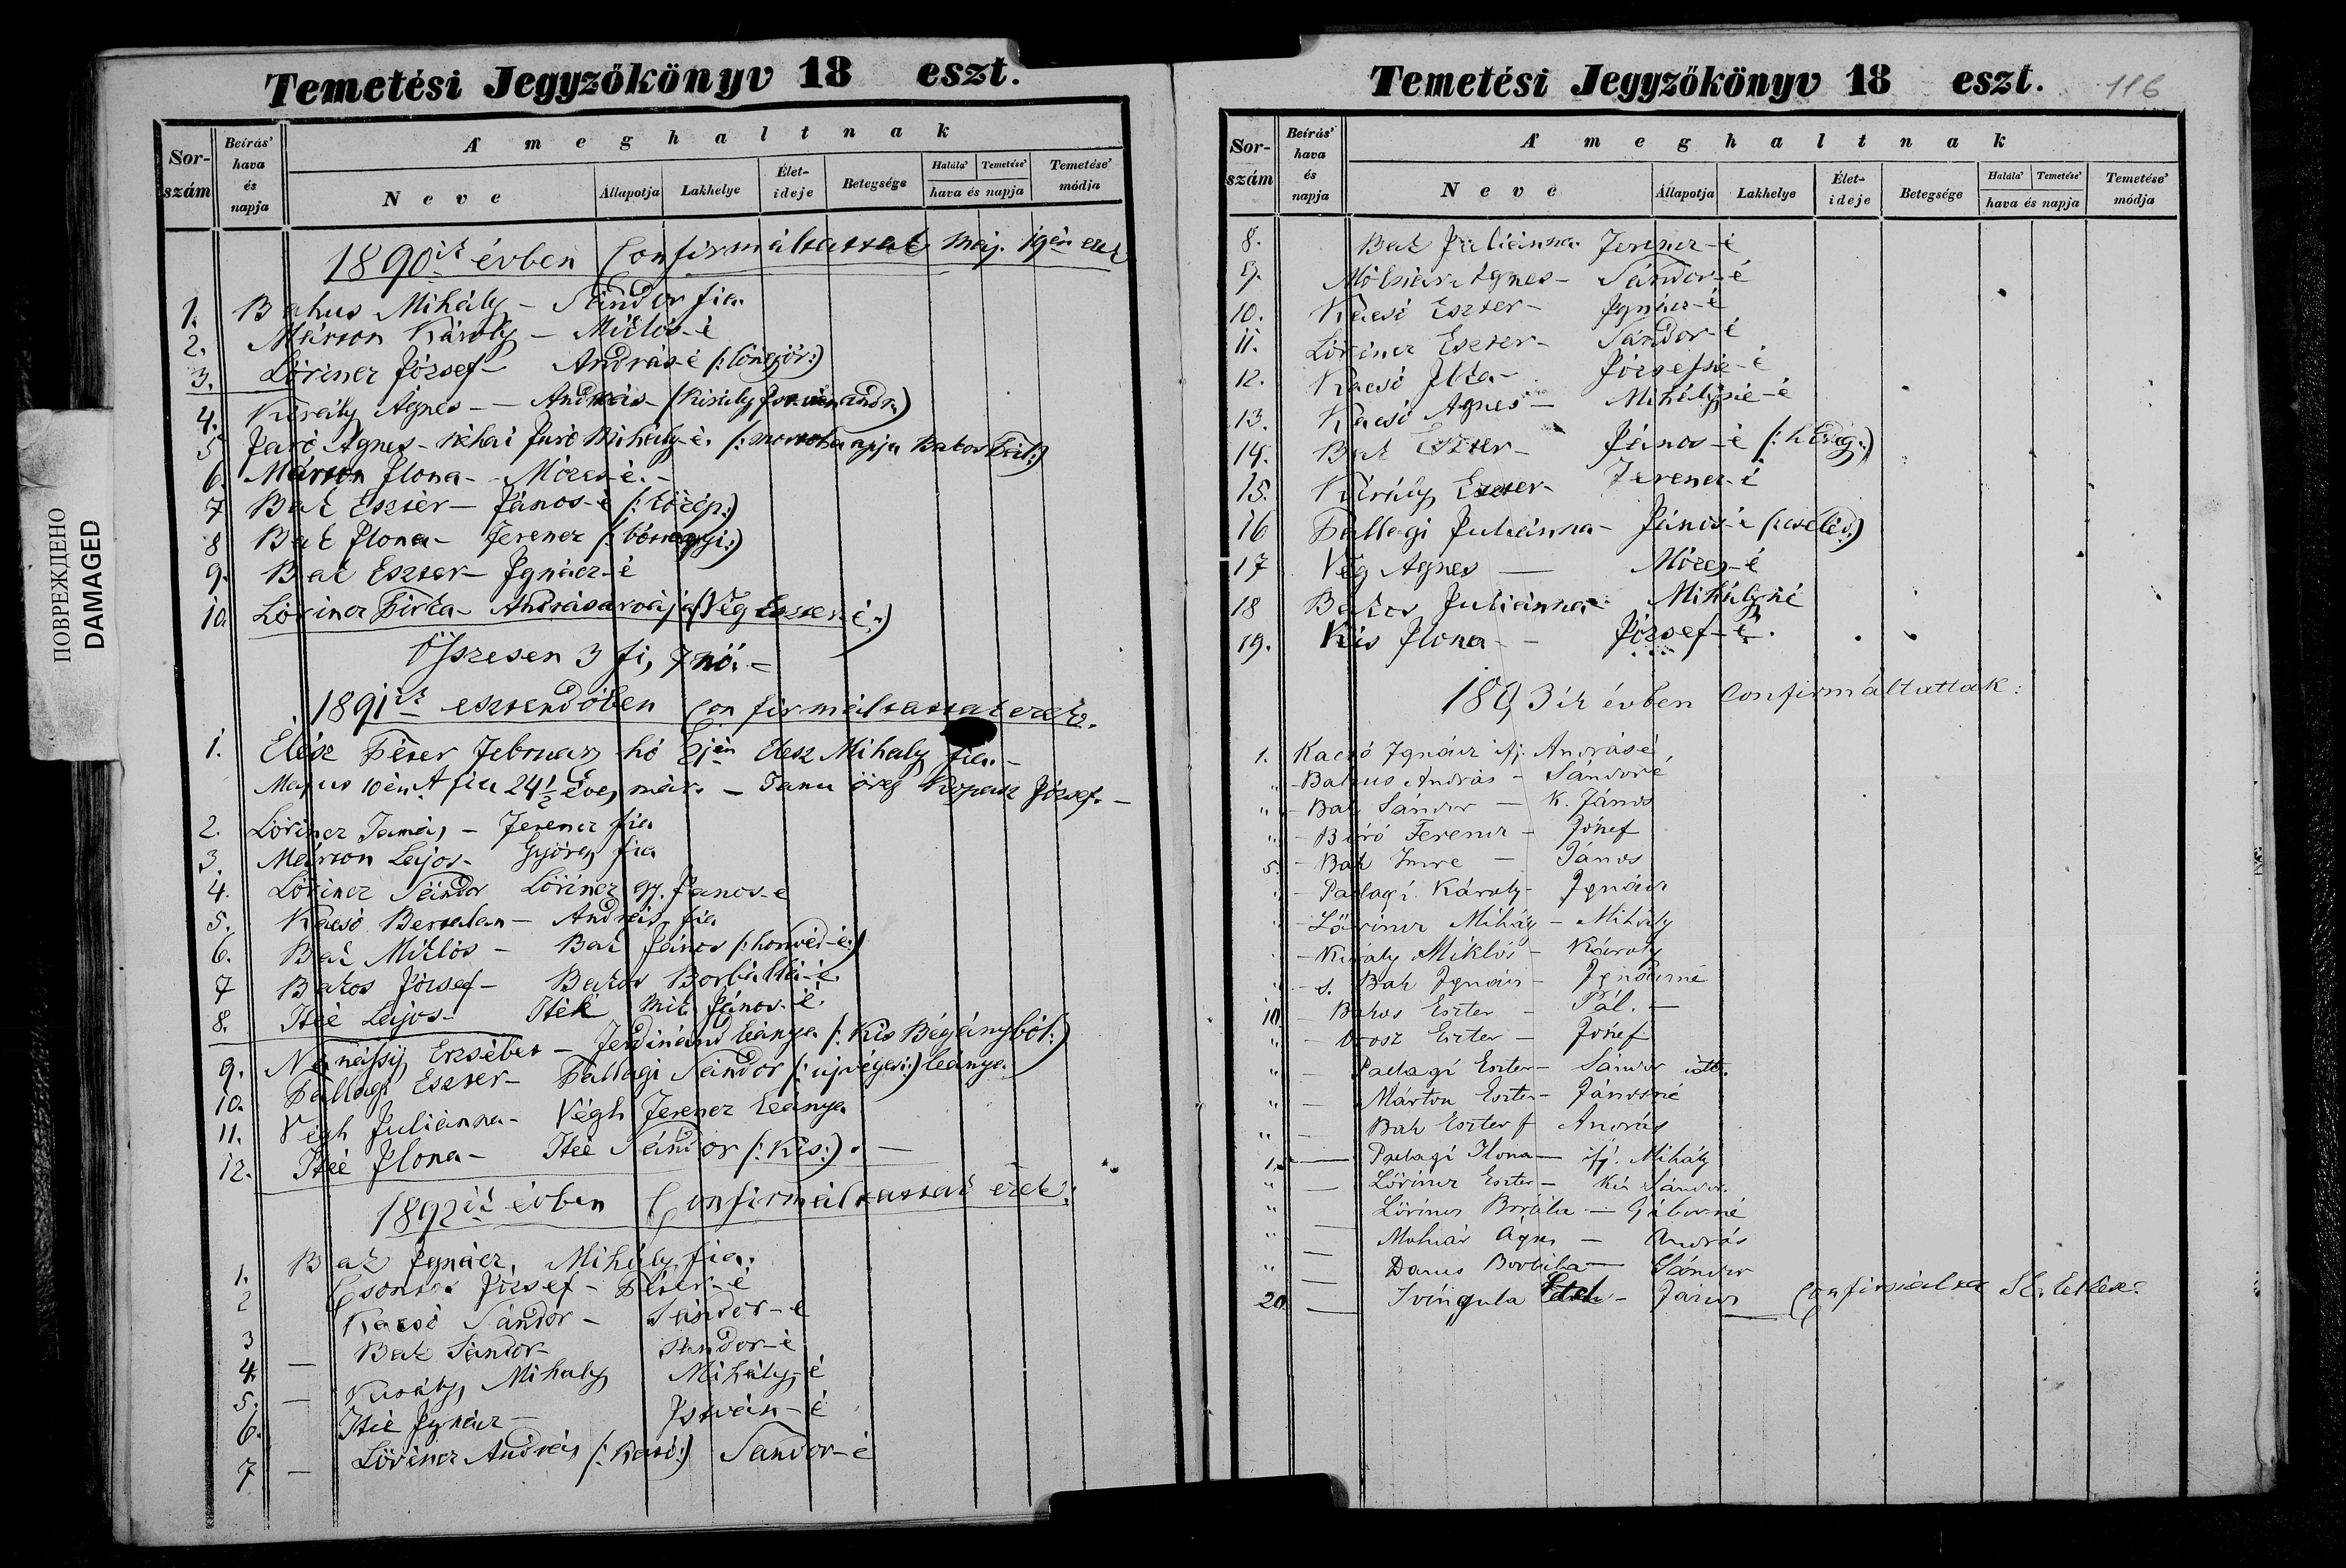 Temetési Jegyzőkönyv 18 eszt.
Sor-szám
Beírás' hava és napja
A' meghaltnak
Neve
Állapotja
Lakhelye
Élet-ideje
Betegsége
Halála' Temetése'
hava és napja
Temetése' módja
1890ik évben Confirmáltattak máj. 19én ezek
1. Bakus Mihály - Sándor fia
2. Márton Károly - Miklós-é
3. Lőrincz József - András-é
4. Király Ágnes - András - (Király
5 Jaró Ágnes - néhai Jaró Mihály-é. (: mostoha apja Bakos Pál:)
6. Márton Ilona - Mózes-é. -
7 Bak Eszter - János-é (: közép:)
8 Bak Ilona - Ferencz
9. Bak Eszter - Ignácz-é
10. Lőrincz Piroska - András árvája (Vég Eszter-é:)
Összesen 3 fi, 7 nő. -
1891ik esztendőben Confirmáltattak ezek.
1. Elész Péter Február hó Elesz Mihály fia. -
Május 10én A fiu 24 1/2 éves már. - Tanu öreg Kopasz József. -
2. Lőrincz Tamás - Ferencz fia
3. Márton Lajos - György fia
4. Lőrincz Sándor Lőrincz János-é
5. Kacsó Bertalan - András fia
6. Bak Miklós - Bak János (: honvéd-é:)
7 Bakos József - Bakos Borbálláé.
8. Itéé Lajos - János-é.
9. Erzsébet - Ferdinánd leánya (: Kis Bégányból:)
10. Pallagi Eszter - Pallagi Sándor (: ujvégesi:) leánya.
11. Végh Juliánna - Végh Ferencz leánya
12. Itéé Ilona - Itéé Sándor (: Kis:). -
1892ik évben Confirmáltattak ezek:
1. Bak Ignácz, Mihály fia.
2 Csonka József - Péter-é
3 Kacsó Sándor - Sándor-é
4. - Bak Sándor - Sándor-é
5. - Király Mihály Mihály-é
6. Itéé Ignácz - István-é
7 - Lőrincz András (: Kacsó:) Sándor-é
Temetési Jegyzőkönyv 18 eszt. 116
Sor-szám
Beírás' hava és napja
A' meghaltnak
Neve
Állapotja
Lakhelye
Élet-ideje
Betegsége
Halála' Temetése'
hava és napja
Temetése' módja
8. Bak Juliánna Ferencz-é
9. Molnár Ágnes - Sándor-é
10. Kacsó Eszter - Ignácz-é
11. Lőrincz Eszter - Sándor-é
12. Kacsó Ilka - Józsefné-é
13. Kacsó Ágnes - Mihályné-é
14. Bak Eszter - János-é
15. Király Eszter - Ferencz-é
16 Pallagi Juliánna - János-é (: cseléd:)
17 Vég Ágnes - Mózes-é
18 Bakos Juliánna - Mihályné
19. Kis Ilona - József-é.
1893ik évben Confirmáltattak:
1. Kacsó Ignácz ifj. Andrásé
" - Bakus András - Sándoré
" - Bak Sándor - K. János
" - Biró Ferencz - József
5. - Bak Imre - János
" - Pallagi Károly - Ignácz
" - Lőrincz Mihály - Mihály
" - Király Miklós - Károly
" - s. Bak Ignácz - Ignáczné
10 - Bakos Eszter - Pál. -
" - Orosz Eszter - József
" - Pallagi Eszter - Sándor
" - Márton Eszter - Jánosné
" - Bak Eszter András
1 - Pallagi Ilona - ifj. Mihály
" - Lőrincz Eszter - Kis Sándor.
" - Lőrincz Borbála - Gáborné
" - Molnár Ágnes - András
" - Danus Borbála - Sándor
20 - Svingula Etel - János Confirmálta